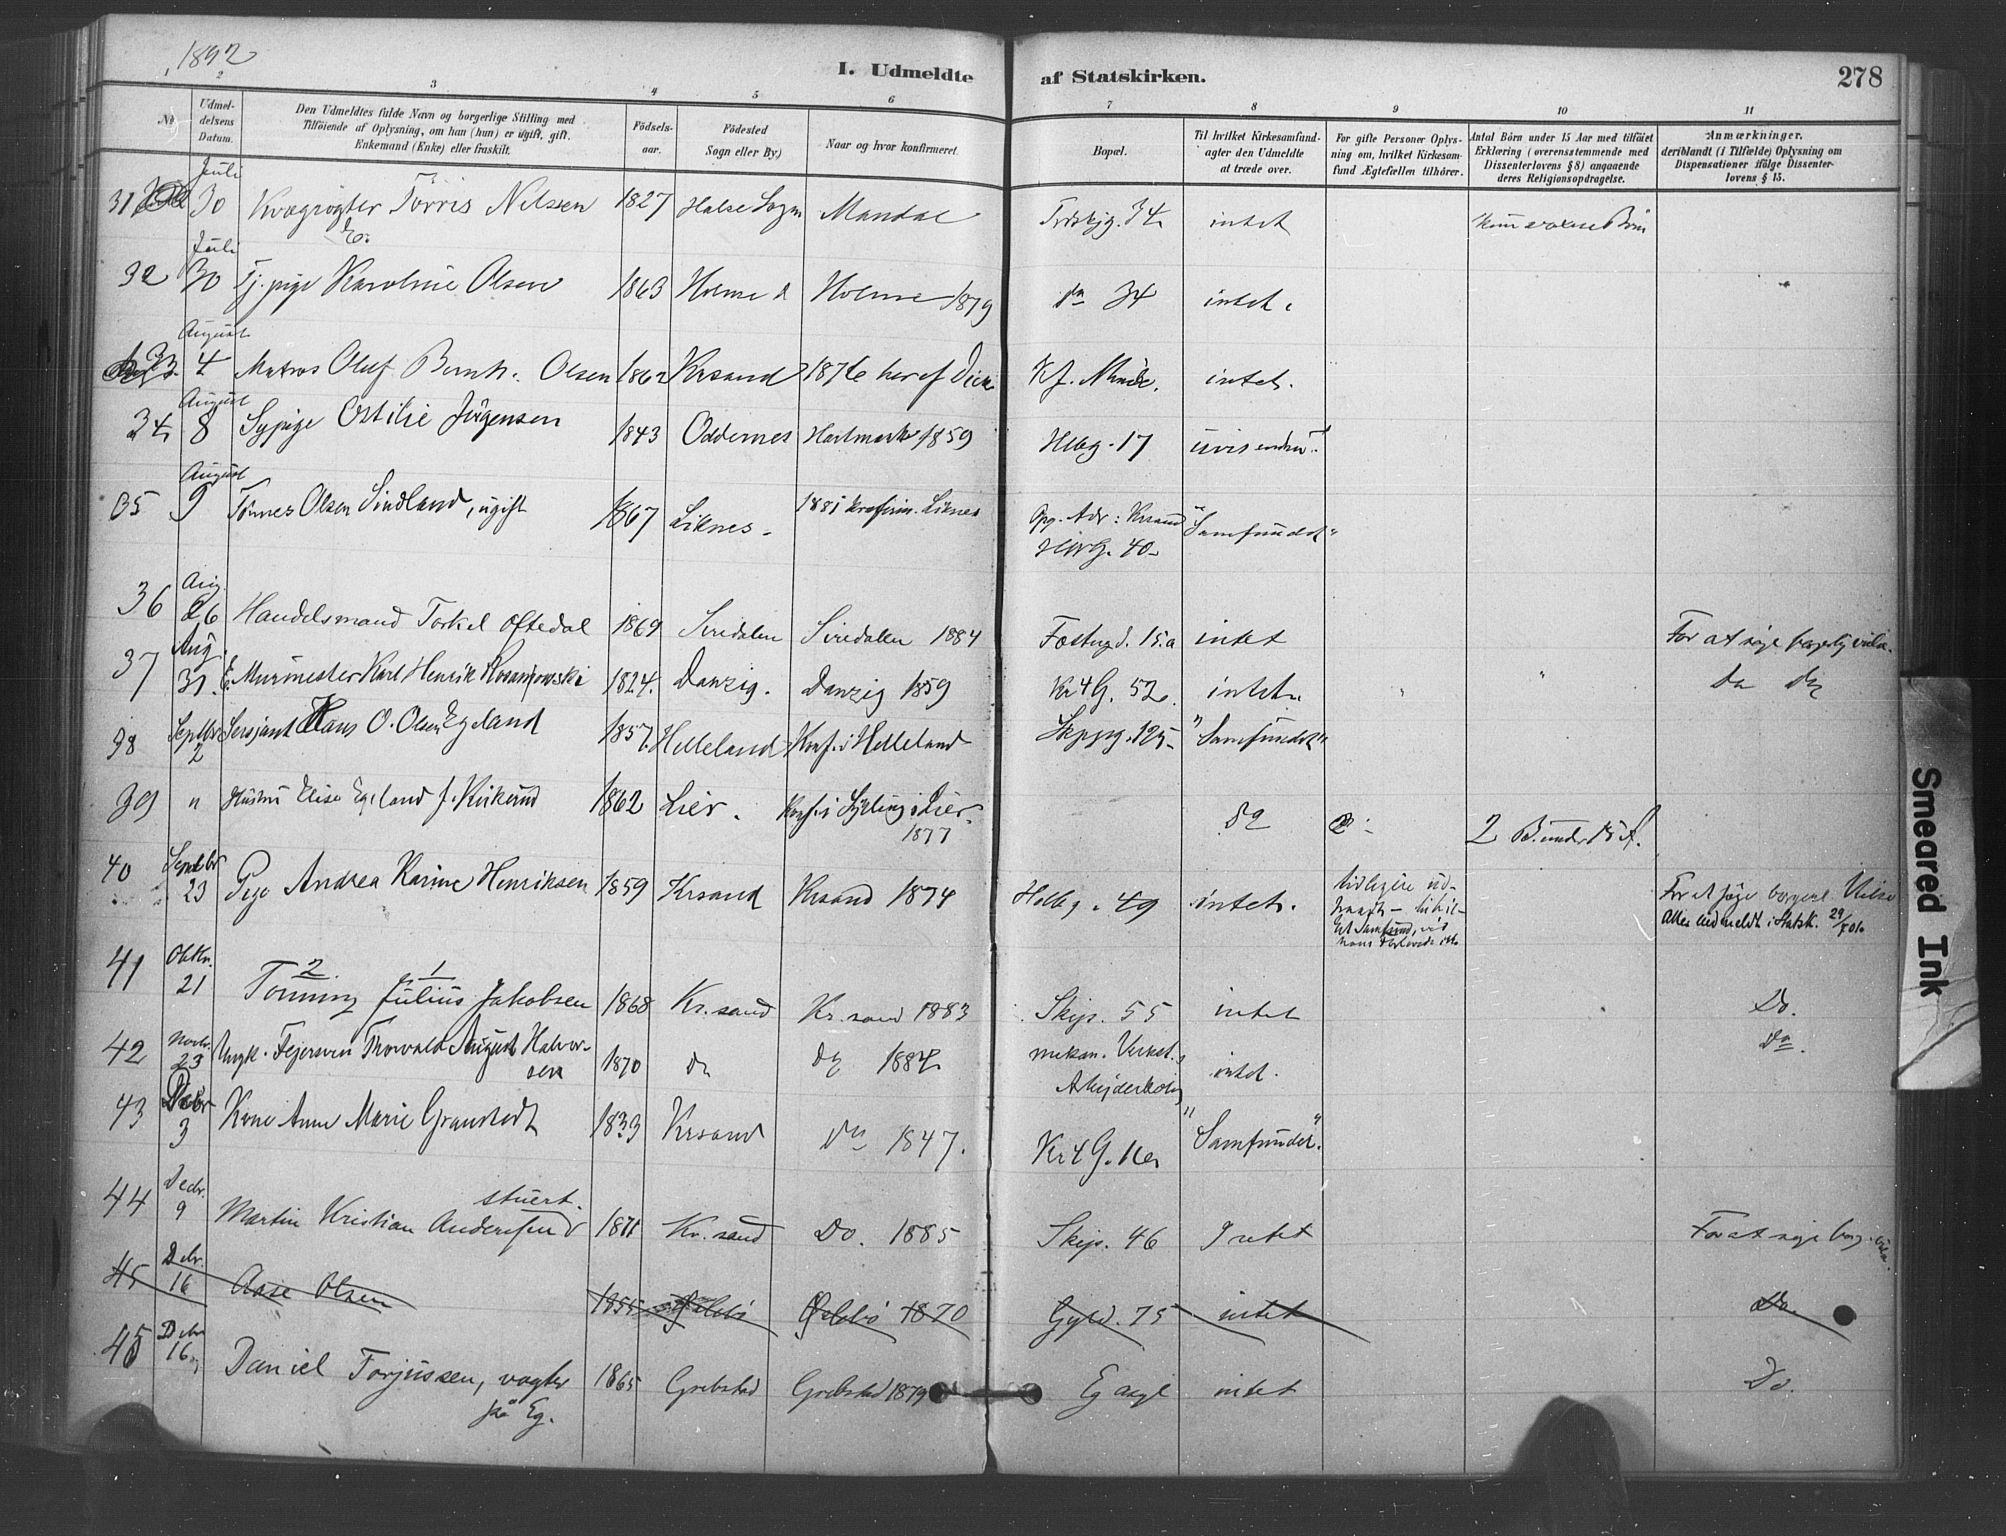 1892
I. Udmeldte af Statskirken.
278
1 2 3 4 5 6 7 8 9 10 11
No.
Udmel-
delsens
Datum.
Den Udmeldtes fulde Navn og borgerlige Stilling med
Tilføiende af Oplysning, om han (hun) er ugift, gift,
Enkemand (Enke) eller fraskilt.
Födsels-
aar.
Födested
Sogn eller By)
Naar og hvor konfirmeret.
Bopæl.
Til hvilket Kirkesamfund-
agter den Udmeldte
at træde over.
For gifte Personer Oplys-
ning om, hvilket Kirkesam-
fund Ægtefællen tilhörer.
Antal Börn under 15 Aar med tilføiet
Erklæring (overensstemmende med
Dissenterlovens § 8) angaaende
deres Religionsopdragelse.
Anmærkninger.
deriblandt (i Tilfælde) Oplysning om
Dispensationer ifølge Dissenter-
lovens § 15.
31 Juli 30 Kvægrøgter Törris Nilssen 1827 Halse Sogn Mandal 34 intet kun voksne Börn
E.
32 Juli 30 Tj. pige Karoline Olsen 1863 Holme Holme 1879 do 34 intet.
33. August 4 Matros Oluf Bernh. Olsen 1862 Krsand 1876 her af intet.
34 August 8 Sypige Ostilie Jørgensen 1843 Oddernes Hartmark 1859 Hlbg. 17
35 August 9 Tønnes Olsen Sindland, ugift 1867 Liknes. 1881 Liknes Opg. Adr: Krsand "Samfundet"
40
36 Aug. 26 Handelsmand Torkel Oftedal 1869 Siredalen Siredalen 1884 15.a intet For at søge borgerlig vielse.
37 Aug. 31. E. Murmester Karl Henrik 1824. Danzig. Danzig 1859 Kr 4 G. 52. intet " " do do
38 Septbr 2 Sersjant Hans O. Olsen Egeland 1857. Helleland Konf. i Helleland Skppg. 125 "Samfundet"
39 " Hustru Elise Egeland f. 1862 Lier. Konf. i Sylling i Lier. 1877 do 2 B. under 15 A.
40 Septbr 23 Pige Andrea Karine Henriksen 1859 Krsand Krsand 1874 Holbg. 49 intet. tidligere ud-
For at søge borgerl. Vielse
atter indmeldt i Statsk. 29/
41 Oktbr. 21 2. 1 Tönning Julius Jakobsen 1868 Kr.sand Kr.sand 1883 Skip. 55 intet Do.
42 Novbr. 23 Ungk. Fejersven Thorvald August Halvor-
sen 1870 do do 1884 mekan. Verkst. intet. do.
43 Decbr 3 Kone Anne Marie Granstedt 1833 Krsand do 1847. Kr 4 G. "Samfundet".
44 Decbr. 9 stuert. Martin Kristian Anderssen 1871 Kr.sand Do. 1885 Skip. 46 Intet For at søge borg. vielse.
45 Debr. 16 Aase Olsen 1855 Øslebö Øslebö 1870 Gyld. 75 intet Do.
45 Debr 16 Daniel Torjussen, vogter
på Eg. 1865 Grebstad Grebstad 1879 Eg asyl intet Do.
Smeared Ink